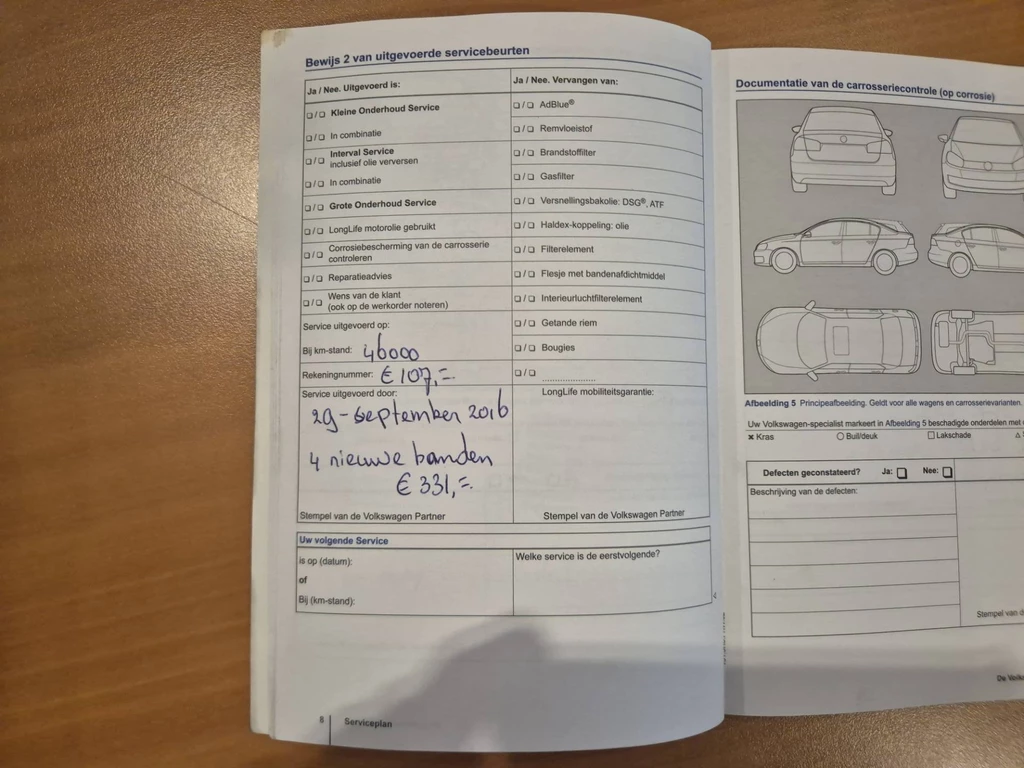 Bewijs 2 van uitgevoerde servicebeurten
Ja / Nee. Uitgevoerd is:
❑ / ❑ Kleine Onderhoud Service
❑ / ❑ In combinatie
❑ / ❑ Interval Service
inclusief olie verversen
❑ / ❑ In combinatie
❑ / ❑ Grote Onderhoud Service
❑ / ❑ LongLife motorolie gebruikt
❑ / ❑ Corrosiebescherming van de carrosserie
controleren
❑ / ❑ Reparatieadvies
❑ / ❑ Wens van de klant
(ook op de werkorder noteren)
Service uitgevoerd op:
Bij km-stand: 46000
Rekeningnummer: € 107,=
Service uitgevoerd door:
29-september 2016
4 nieuwe banden
€ 331,=
Stempel van de Volkswagen Partner
Ja / Nee. Vervangen van:
❑ / ❑ AdBlue®
❑ / ❑ Remvloeistof
❑ / ❑ Brandstoffilter
❑ / ❑ Gasfilter
❑ / ❑ Versnellingsbakolie: DSG®, ATF
❑ / ❑ Haldex-koppeling: olie
❑ / ❑ Filterelement
❑ / ❑ Flesje met bandenafdichtmiddel
❑ / ❑ Interieurluchtfilterelement
❑ / ❑ Getande riem
❑ / ❑ Bougies
❑ / ❑ .....................
LongLife mobiliteitsgarantie:
Stempel van de Volkswagen Partner
Uw volgende Service
is op (datum):
of
Bij (km-stand):
Welke service is de eerstvolgende?
8 Serviceplan
Documentatie van de carrosseriecontrole (op corrosie)
Afbeelding 5 Principeafbeelding. Geldt voor alle wagens en carrosserievarianten.
Uw Volkswagen-specialist markeert in Afbeelding 5 beschadigde onderdelen met
✖ Kras
○ Buil/deuk
☐ Lakschade
Defecten geconstateerd? Ja: ❑ Nee: ❑
Beschrijving van de defecten:
Stempel van
De